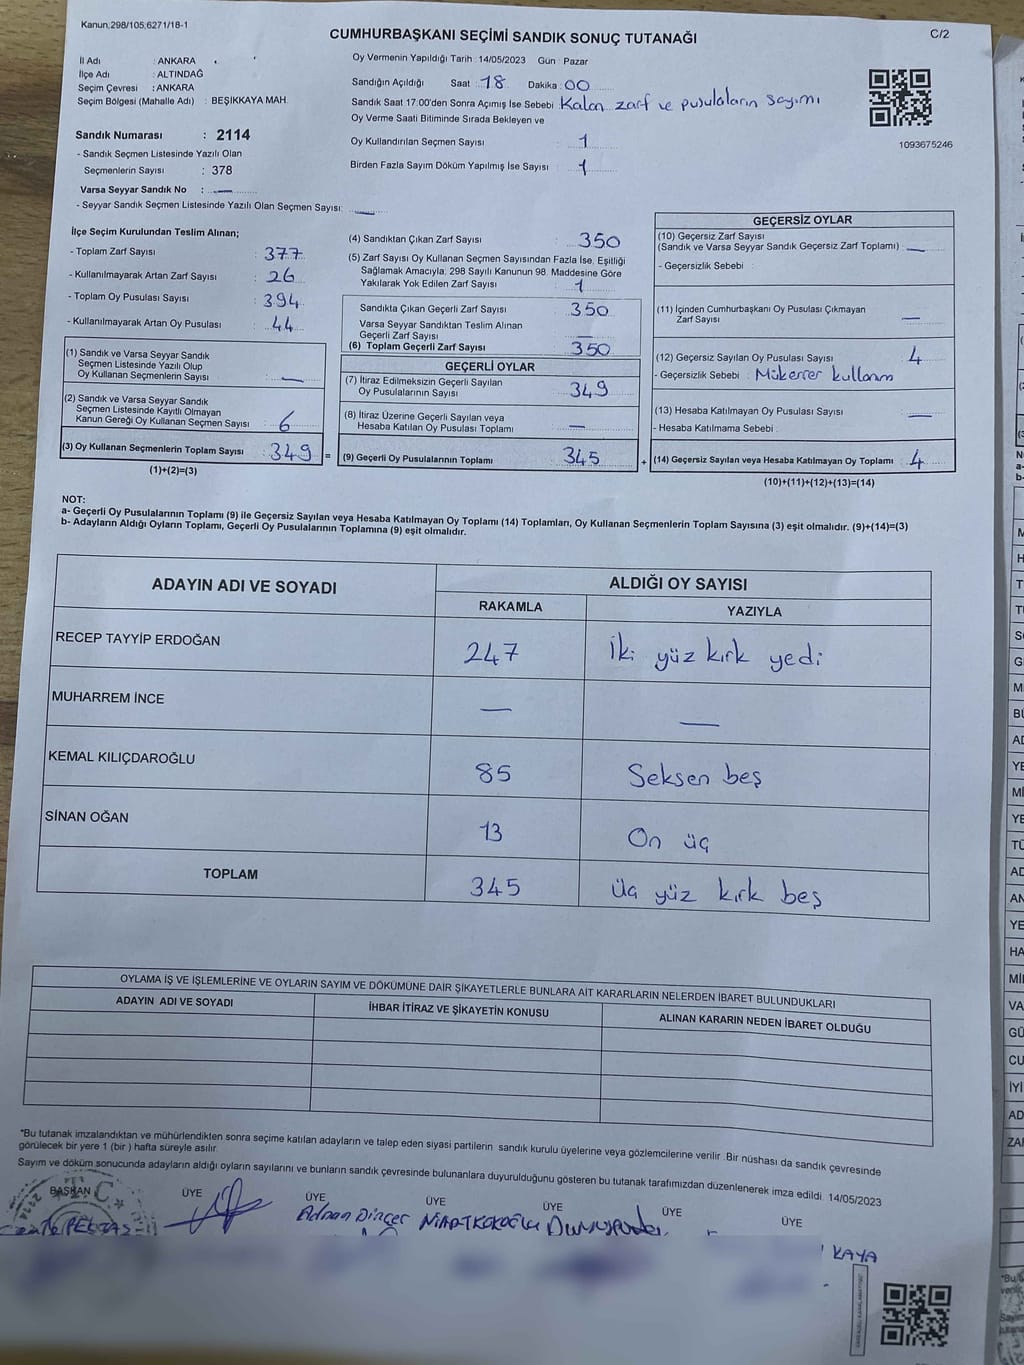 Kanun;298/105;6271/18-1
CUMHURBAŞKANI SEÇİMİ SANDIK SONUÇ TUTANAĞI
C/2
İl Adı : ANKARA
İlçe Adı : ALTINDAĞ
Seçim Çevresi : ANKARA
Seçim Bölgesi (Mahalle Adı) : BEŞİKKAYA MAH.
Sandık Numarası : 2114
- Sandık Seçmen Listesinde Yazılı Olan
Seçmenlerin Sayısı : 378
Varsa Seyyar Sandık No : —
- Seyyar Sandık Seçmen Listesinde Yazılı Olan Seçmen Sayısı: —
Oy Vermenin Yapıldığı Tarih : 14/05/2023 Gün : Pazar
Sandığın Açıldığı Saat 18 Dakika : 00
Sandık Saat 17:00'den Sonra Açımış İse Sebebi : Kalan zarf ve pusulaların sayımı
Oy Verme Saati Bitiminde Sırada Bekleyen ve
Oy Kullandırılan Seçmen Sayısı : 1
Birden Fazla Sayım Döküm Yapılmış İse Sayısı : 1
1093675246
İlçe Seçim Kurulundan Teslim Alınan;
- Toplam Zarf Sayısı : 377
- Kullanılmayarak Artan Zarf Sayısı : 26
- Toplam Oy Pusulası Sayısı : 394
- Kullanılmayarak Artan Oy Pusulası : 44
(1) Sandık ve Varsa Seyyar Sandık
Seçmen Listesinde Yazılı Olup
Oy Kullanan Seçmenlerin Sayısı : —
(2) Sandık ve Varsa Seyyar Sandık
Seçmen Listesinde Kayıtlı Olmayan
Kanun Gereği Oy Kullanan Seçmen Sayısı : 6
(3) Oy Kullanan Seçmenlerin Toplam Sayısı : 349 =
(1)+(2)=(3)
(4) Sandıktan Çıkan Zarf Sayısı : 350
(5) Zarf Sayısı Oy Kullanan Seçmen Sayısından Fazla İse, Eşitliği
Sağlamak Amacıyla; 298 Sayılı Kanunun 98. Maddesine Göre
Yakılarak Yok Edilen Zarf Sayısı : 1
Sandıkta Çıkan Geçerli Zarf Sayısı : 350
Varsa Seyyar Sandıktan Teslim Alınan
Geçerli Zarf Sayısı : —
(6) Toplam Geçerli Zarf Sayısı : 350
GEÇERLİ OYLAR
(7) İtiraz Edilmeksizin Geçerli Sayılan
Oy Pusulalarının Sayısı : 349
(8) İtiraz Üzerine Geçerli Sayılan veya
Hesaba Katılan Oy Pusulası Toplamı : —
(9) Geçerli Oy Pusulalarının Toplamı : 345 +
GEÇERSİZ OYLAR
(10) Geçersiz Zarf Sayısı
(Sandık ve Varsa Seyyar Sandık Geçersiz Zarf Toplamı) : —
- Geçersizlik Sebebi :
(11) İçinden Cumhurbaşkanı Oy Pusulası Çıkmayan
Zarf Sayısı : —
(12) Geçersiz Sayılan Oy Pusulası Sayısı : 4
- Geçersizlik Sebebi : Mükerrer kullanım
(13) Hesaba Katılmayan Oy Pusulası Sayısı : —
- Hesaba Katılmama Sebebi :
(14) Geçersiz Sayılan veya Hesaba Katılmayan Oy Toplamı : 4
(10)+(11)+(12)+(13)=(14)
NOT:
a- Geçerli Oy Pusulalarının Toplamı (9) ile Geçersiz Sayılan veya Hesaba Katılmayan Oy Toplamı (14) Toplamları, Oy Kullanan Seçmenlerin Toplam Sayısına (3) eşit olmalıdır. (9)+(14)=(3)
b- Adayların Aldığı Oyların Toplamı, Geçerli Oy Pusulalarının Toplamına (9) eşit olmalıdır.
ADAYIN ADI VE SOYADI
ALDIĞI OY SAYISI
RAKAMLA YAZIYLA
RECEP TAYYİP ERDOĞAN 247 İki yüz kırk yedi
MUHARREM İNCE — —
KEMAL KILIÇDAROĞLU 85 Seksen beş
SİNAN OĞAN 13 On üç
TOPLAM 345 Üç yüz kırk beş
OYLAMA İŞ VE İŞLEMLERİNE VE OYLARIN SAYIM VE DÖKÜMÜNE DAİR ŞİKAYETLERLE BUNLARA AİT KARARLARIN NELERDEN İBARET BULUNDUKLARI
ADAYIN ADI VE SOYADI İHBAR İTİRAZ VE ŞİKAYETİN KONUSU ALINAN KARARIN NEDEN İBARET OLDUĞU
*Bu tutanak imzalandıktan ve mühürlendikten sonra seçime katılan adayların ve talep eden siyasi partilerin sandık kurulu üyelerine veya gözlemcilerine verilir .Bir nüshası da sandık çevresinde
görülecek bir yere 1 (bir ) hafta süreyle asılır.
Sayım ve döküm sonucunda adayların aldığı oyların sayılarını ve bunların sandık çevresinde bulunanlara duyurulduğunu gösteren bu tutanak tarafımızdan düzenlenerek imza edildi. 14/05/2023
BAŞKAN ÜYE ÜYE ÜYE ÜYE ÜYE ÜYE
Adnan Dinçer
KAYA